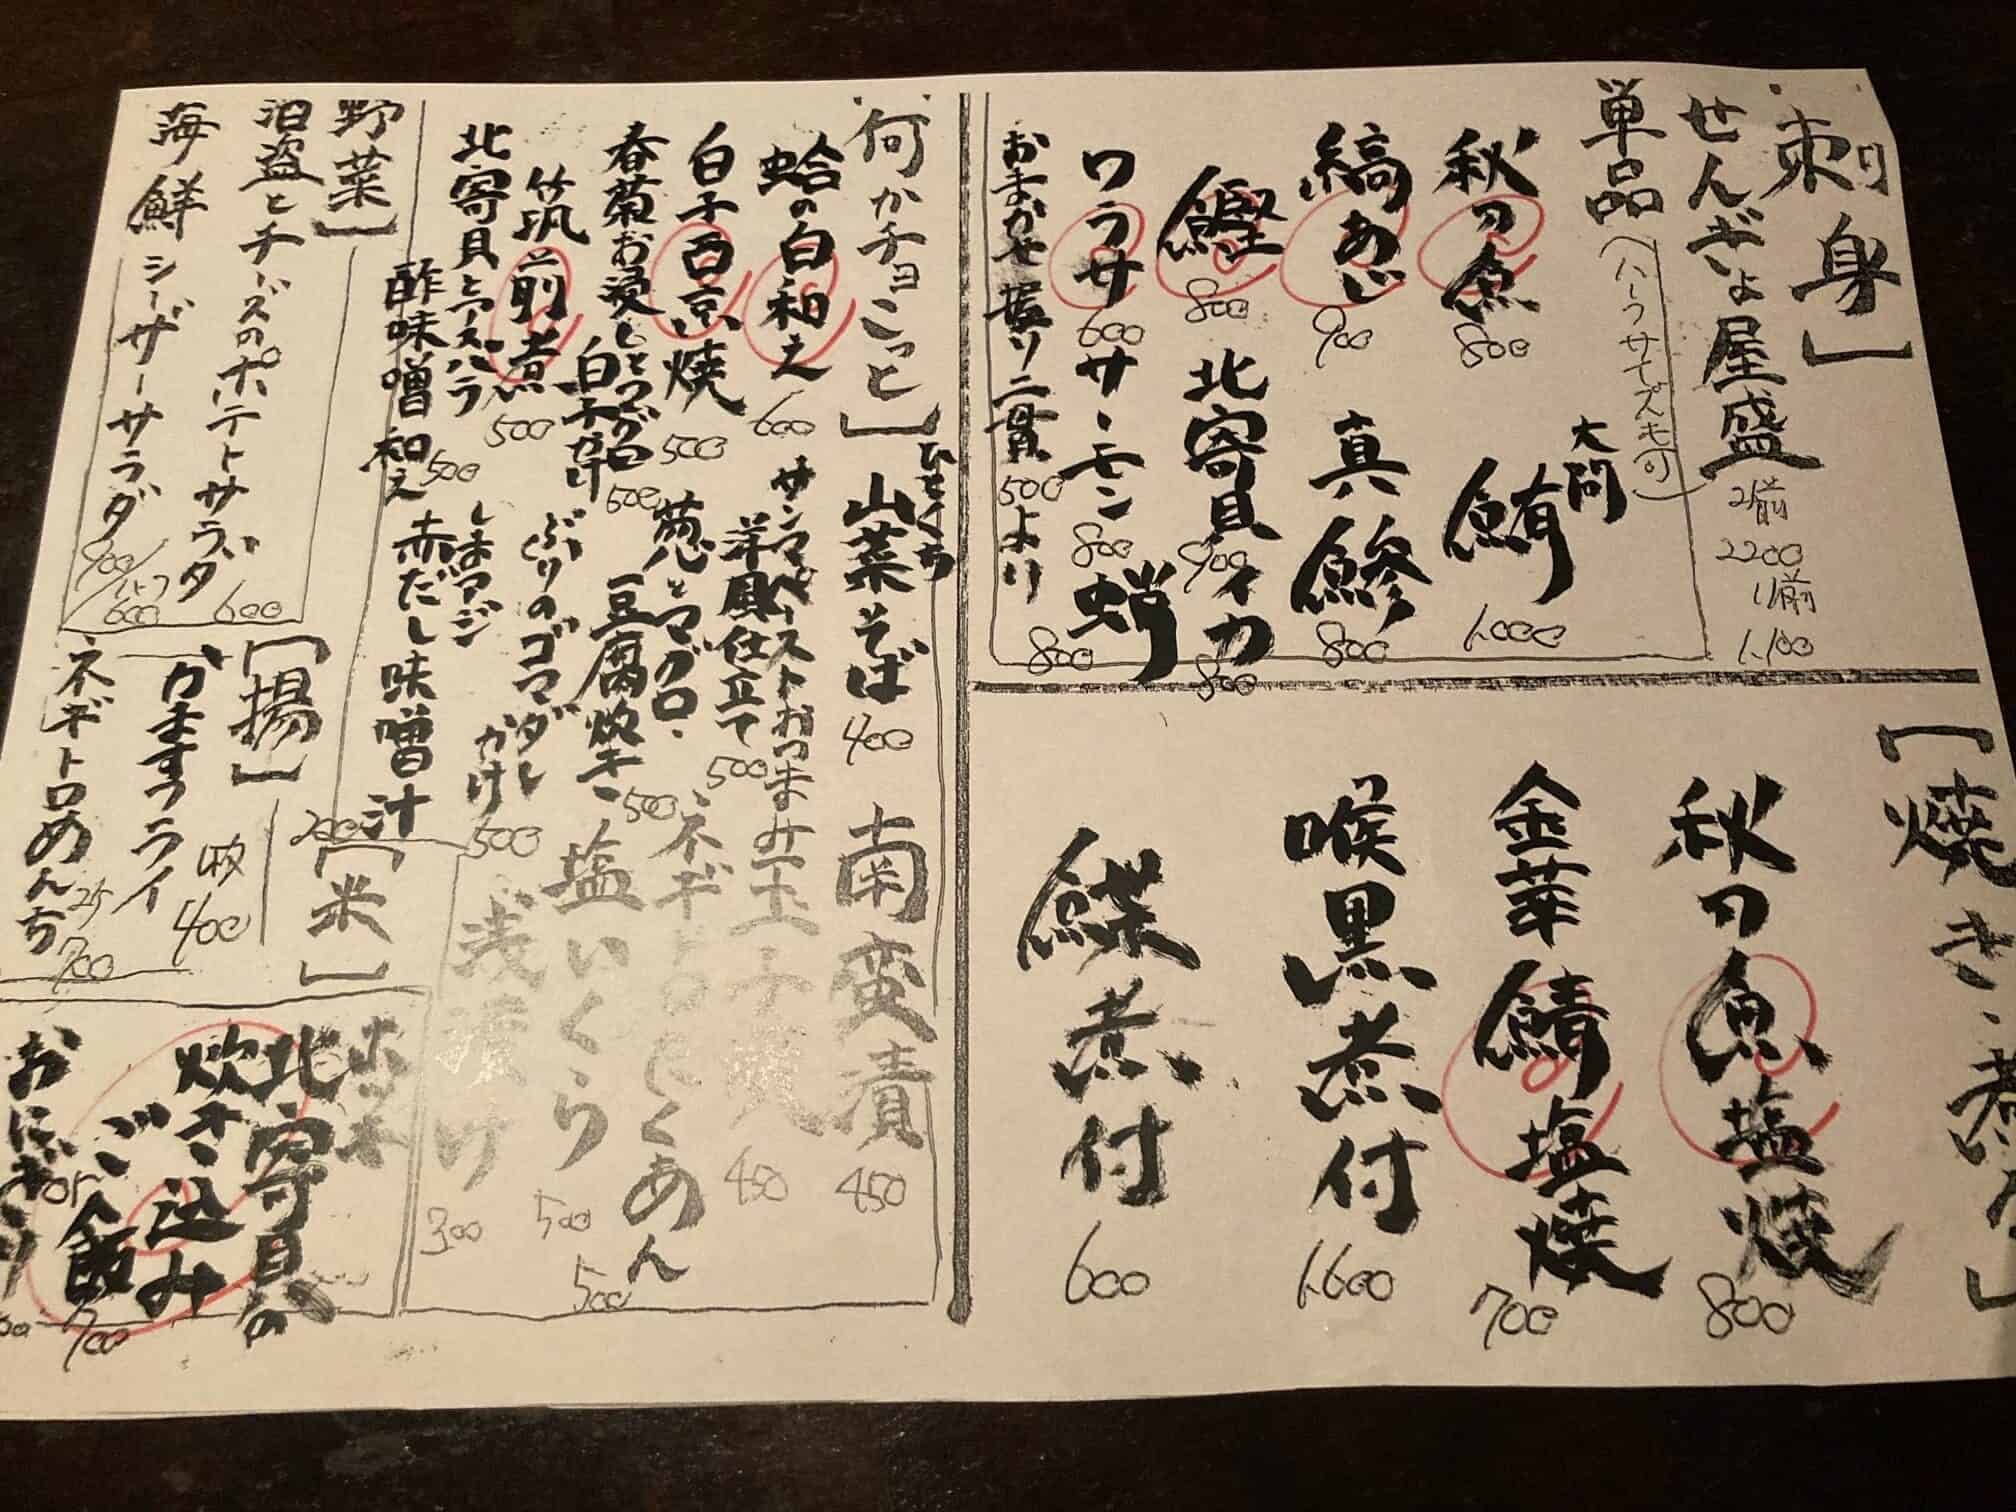 刺身】
せんぎょ屋盛
2人前
2200
1人前
1.100
単品(ハーフサイズも可)
秋の魚
800
大間
鮪
1.000
縞あじ
900
真鯵
800
鰹
800
北寄貝
900
イカ
800
ワラサ
600
サーモン
800
蛸
800
おまかせ握り二貫
500より
【焼き・煮方】
秋の魚塩焼
800
金華鯖塩焼
700
喉黒煮付
1.600
鰈煮付
600
何かチョこっと】
ひとくち
山菜そば
400
南蛮漬
450
蛤の白和え
600
サンマペーストおつまみ
洋風仕立て
500
玉子焼
450
白子西京焼
500
葱とマグロ、
豆腐炊き
500
ネギトロたくあん
500
春菊お浸しとつブ
白子がけ
500
ぶりのゴマダレがけ
500
塩いくら
500
筑前煮
500
しまアジ
浅漬け
300
北寄貝とアスパラ
酢味噌和え
500
赤だし味噌汁
200
野菜】
酒盗とチーズのポテトサラダ
600
海鮮シーザーサラダ
900/ハーフ600
【揚】
かますフライ
1枚
400
ネギトロめんち
2ケ
700
【米】
ホッキ
北寄貝の
炊き込み
ご飯
700
or
おにぎり